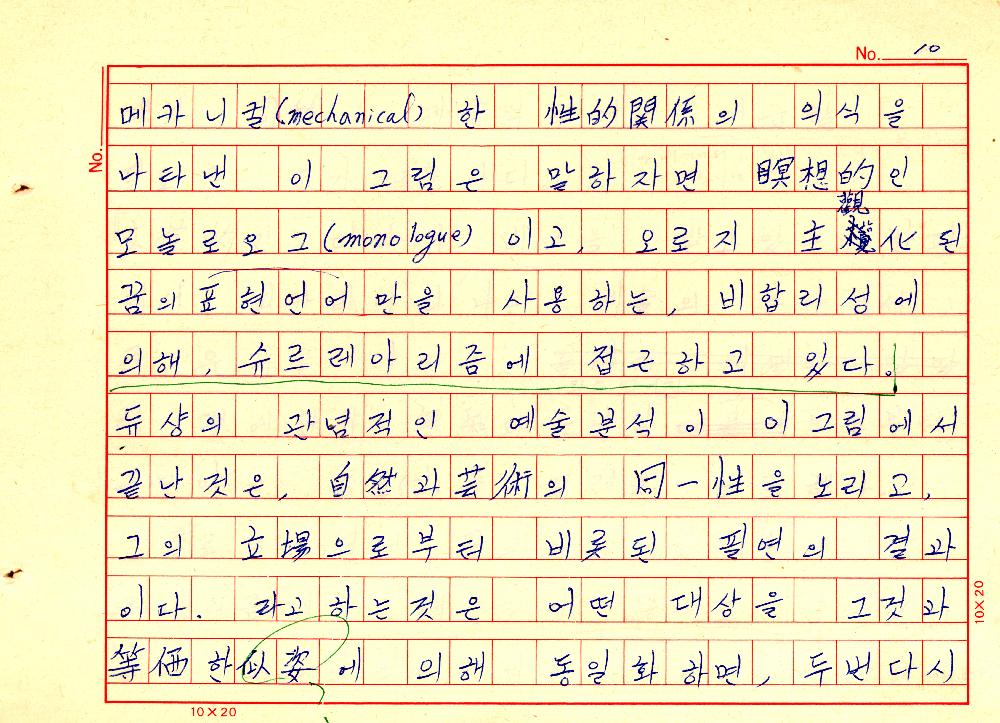 No. 10
No.
메카니컬(mechanical)한 性的関係의 의식을
나타낸 이 그림은 말하자면 瞑想的인
觀
모놀로오그(monologue)이고, 오로지 主化된
꿈의 표현언어만을 사용하는, 비합리성에
의해, 슈르레아리즘에 접근하고 있다.
듀샹의 관념적인 예술분석이 이 그림에서
끝난것은, 自然과 芸術의 同一性을 노리고,
그의 立場으로부터 비롯된 필연의 결과
이다. 라고 하는것은 어떤 대상을 그것과
等価한 似姿에 의해 동일화하면, 두번다시
10×20
10×20